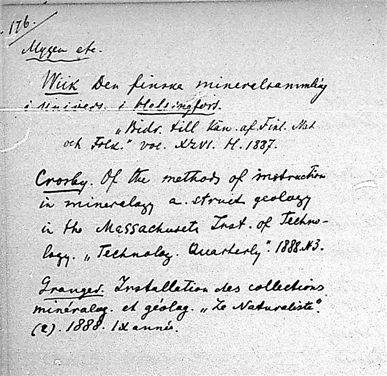 176.
Museen etc.
Wiik Den finska mineralsammling
i Univers. i Helsingfors.
„Bidr. till Kän. af Finl. Nat
och Folk." vol. XLVI. H. 1887.
Crosby. Of the methods of instruction
in mineralogy a. struct geology
in the Massachusets Inst. of Techno-
logy. „Technolog. Quarterly". 1888. N3.
Granger. Installation des collections
minéralog. et géolog. „Le Naturaliste".
(2). 1888. IX année.